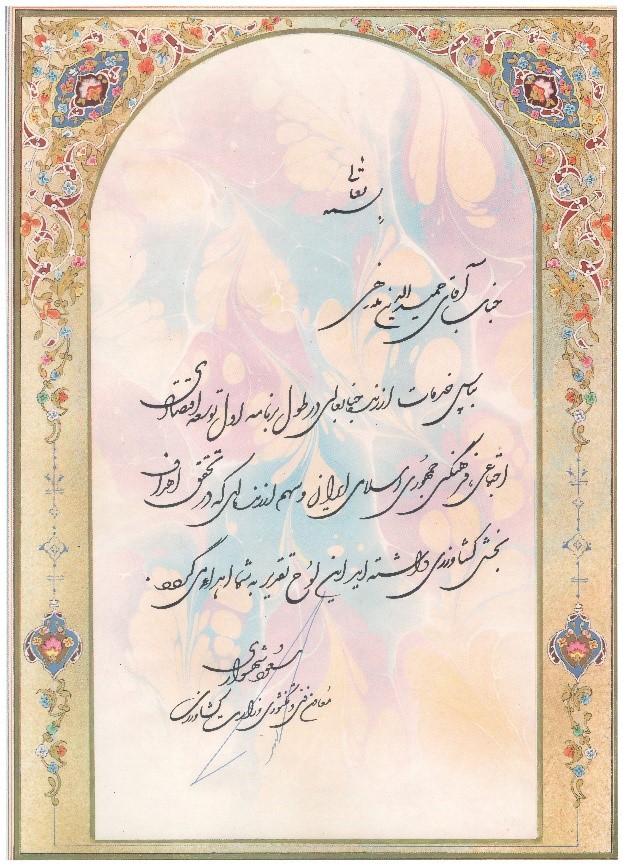 بسمه تعالی
جناب آقای حمیدالدین
بپاس خدمات ارزنده جنابعالی در طول برنامه اول توسعه اقتصادی
اجتماعی، فرهنگی جمهوری اسلامی ایران و سهم ارزنده‌ای که در تحقق اهداف
بخش کشاورزی داشته‌اید این لوح تقدیر به شما اهداء می‌گردد.
مسعود شهسواری
معاون فنی و وزارت کشاورزی